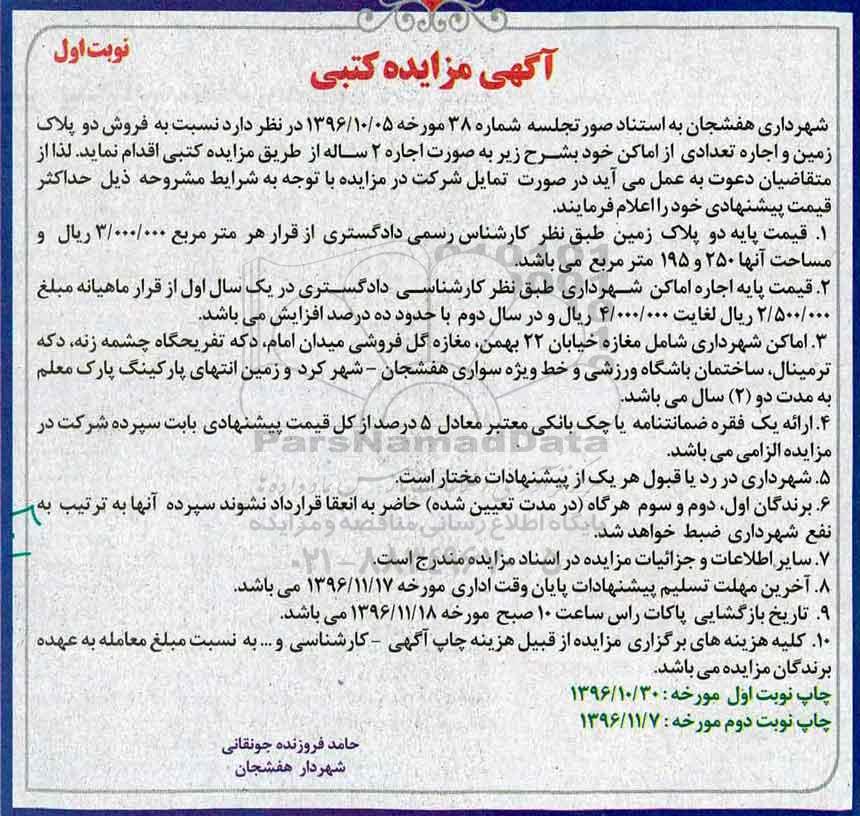 نوبت اول
آگهی مزایده کتبی
شهرداری هفشجان به استناد صورتجلسه شماره ۳۸ مورخه ۱۳۹۶/۱۰/۰۵ در نظر دارد نسبت به فروش دو پلاک
زمین و اجاره تعدادی از اماکن خود بشرح زیر به صورت اجاره ۲ ساله از طریق مزایده کتبی اقدام نماید. لذا از
متقاضیان دعوت به عمل می آید در صورت تمایل شرکت در مزایده با توجه به شرایط مشروحه ذیل حداکثر
قیمت پیشنهادی خود را اعلام فرمایند.
۱. قیمت پایه دو پلاک زمین طبق نظر کارشناس رسمی دادگستری از قرار هر متر مربع ۳/۰۰۰/۰۰۰ ریال و
مساحت آنها ۲۵۰ و ۱۹۵ متر مربع می باشد.
۲. قیمت پایه اجاره اماکن شهرداری طبق نظر کارشناسی دادگستری در یک سال اول از قرار ماهیانه مبلغ
۲/۵۰۰/۰۰۰ ریال لغایت ۴/۰۰۰/۰۰۰ ریال و در سال دوم با حدود ده درصد افزایش می باشد.
۳. اماکن شهرداری شامل مغازه خیابان ۲۲ بهمن، مغازه گل فروشی میدان امام، دکه تفریحگاه چشمه زنه، دکه
ترمینال، ساختمان باشگاه ورزشی و خط ویژه سواری هفشجان - شهر کرد و زمین انتهای پارکینگ پارک معلم
به مدت دو (۲) سال می باشد.
۴. ارائه یک فقره ضمانتنامه یا چک بانکی معتبر معادل ۵ درصد از کل قیمت پیشنهادی بابت سپرده شرکت در
مزایده الزامی می باشد.
ParsNamadData
۵. شهرداری در رد یا قبول هر یک از پیشنهادات مختار است.
۶. برندگان اول، دوم و سوم هرگاه (در مدت تعیین شده) حاضر به انعقا قرارداد نشوند سپرده آنها به ترتیب به
پایگاه اطلاع رسانی مناقصه و مزایده
نفع شهرداری ضبط خواهد شد.
۷. سایر اطلاعات و جزائیات مزایده در اسناد مزایده مندرج است.
۸. آخرین مهلت تسلیم پیشنهادات پایان وقت اداری مورخه ۱۳۹۶/۱۱/۱۷ می باشد.
۹. تاریخ بازگشایی پاکات راس ساعت ۱۰ صبح مورخه ۱۳۹۶/۱۱/۱۸ می باشد.
۱۰. کلیه هزینه های برگزاری مزایده از قبیل هزینه چاپ آگهی - کارشناسی و ... به نسبت مبلغ معامله به عهده
برندگان مزایده می باشد.
چاپ نوبت اول مورخه : ۱۳۹۶/۱۰/۳۰
چاپ نوبت دوم مورخه : ۱۳۹۶/۱۱/۷
حامد فروزنده جونقانی
شهردار هفشجان